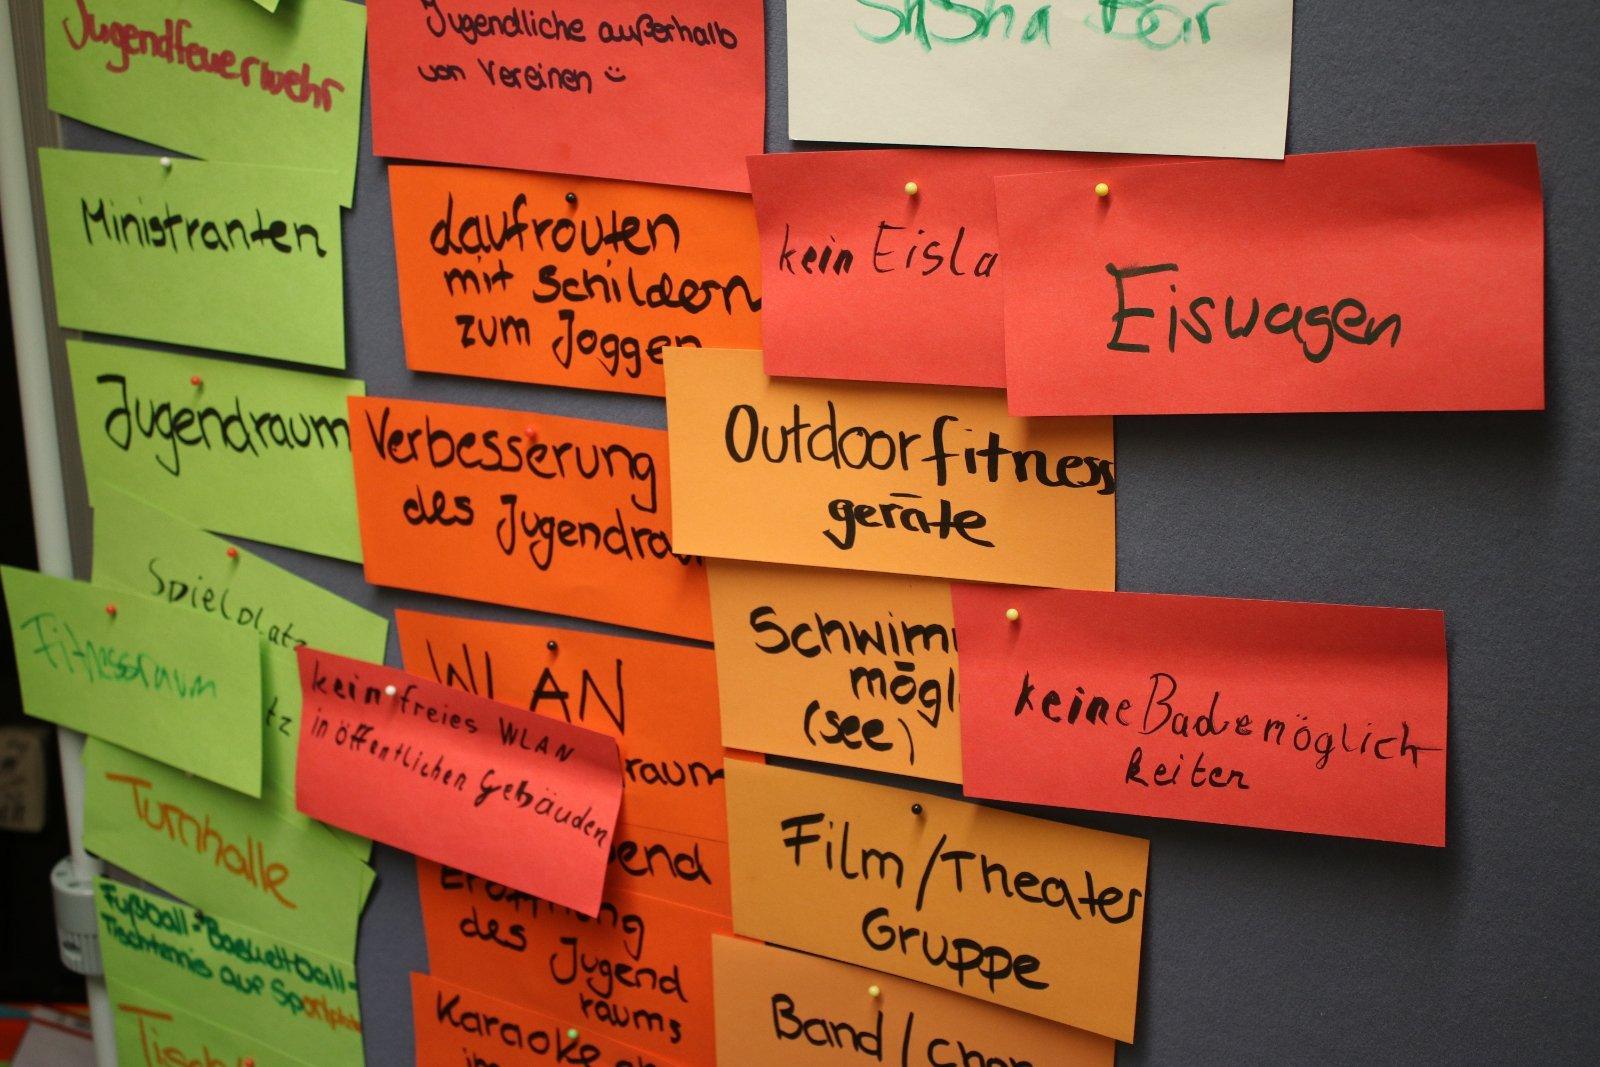 Jugendfeuerwehr
Ministranten
Jugendraum
Spielplatz
Fitnessraum
tz
Turnhalle
Fußball-Basketball-
Tischtennis auf Sportplatz
Tisch
Jugendliche außerhalb
von Vereinen
Laufrouten
mit Schildern
zum Joggen
Verbesserung
des Jugendrau
WLAN
raum
kein freies WLAN
in öffentlichen Gebäuden
end
Eröffnung
des Jugend
raums
Karaoke
im
Shisha Bar
kein Eisla
Eiswagen
Outdoorfitness
geräte
Schwimm
mögl
(see)
keine Bademöglich
keiten
Film/Theater
Gruppe
Band/Chor